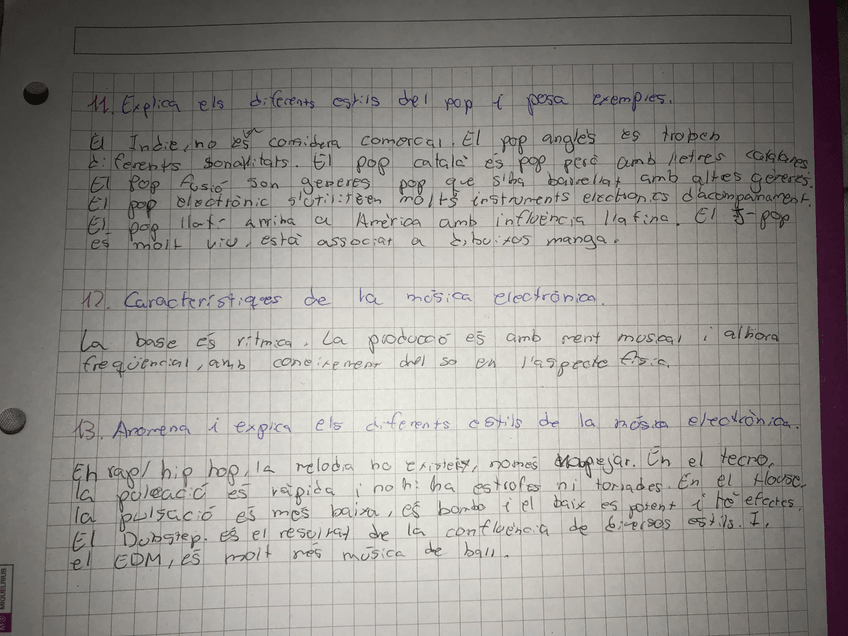 11. Explica els diferents estils del pop i posa exemples.
El Indie, no es considera comercal. El pop anglès es troben
diferents sonalitats. El pop català es pop però amb lletres catalanes
El Pop fusió son generes pop que s'iba baixellat amb altes géneres.
El pop electrònic s'utilitzen molts instruments electronics d'acompanament.
El pop llatí arriba a Amèrica amb influència llatina. El J-pop
es molt viu, està associat a dibuixos manga.
12. Característiques de la música electrònica.
La base és rítmica. La producció és amb ment musical i alhora
freqüencial, amb coneixement del so en l'aspecte físic.
13. Anomena i explica els diferents estils de la música electrònica.
En rap/hip hop, la melodia no existeix, només rapejar. En el tecno,
la pulsació és ràpida i no hi ha estrofes ni tornades. En el House,
la pulsació és més baixa, és bombo i el baix es potent i té efectes.
El Dubstep. és el resultat de la confluència de diversos estils. I,
el EDM, és molt més música de ball.
MIQUELRIUS